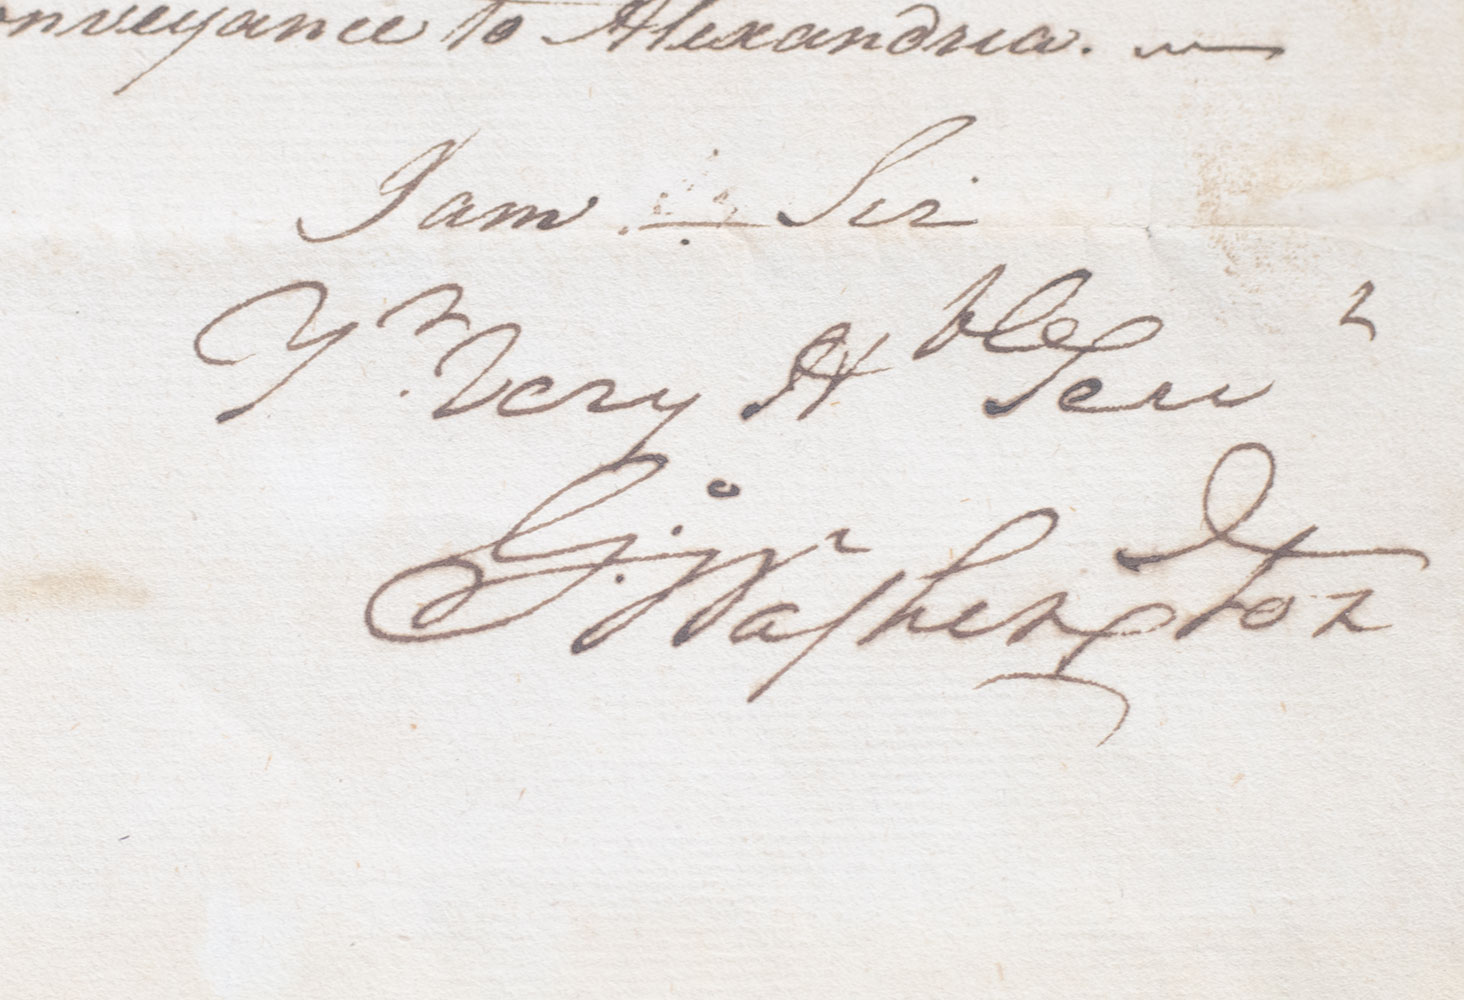 onveyance to Alexandria. —
I am — Sir
Yr. Very Hble Servt
Go: Washington